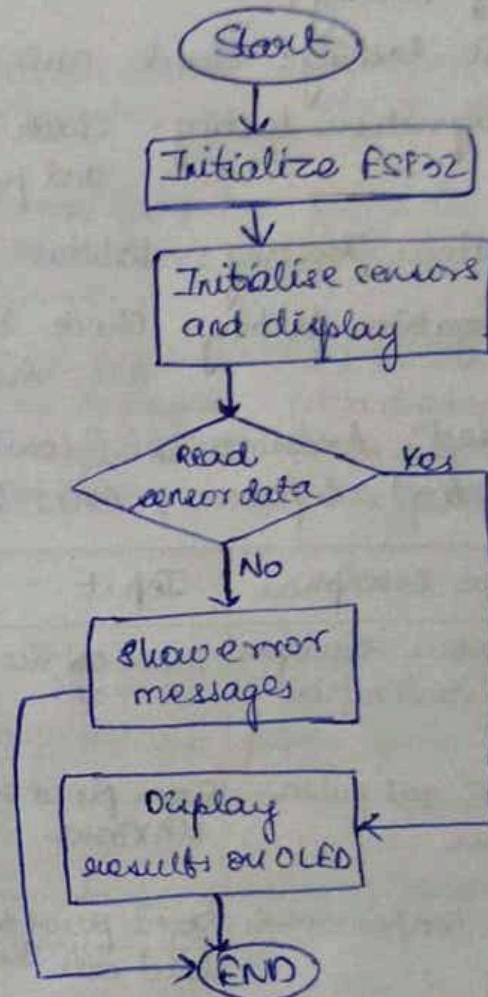 Start
Initialize ESP32
Initialise sensors
and display
Read
sensor data
Yes
No
Show error
messages
Display
results on OLED
END